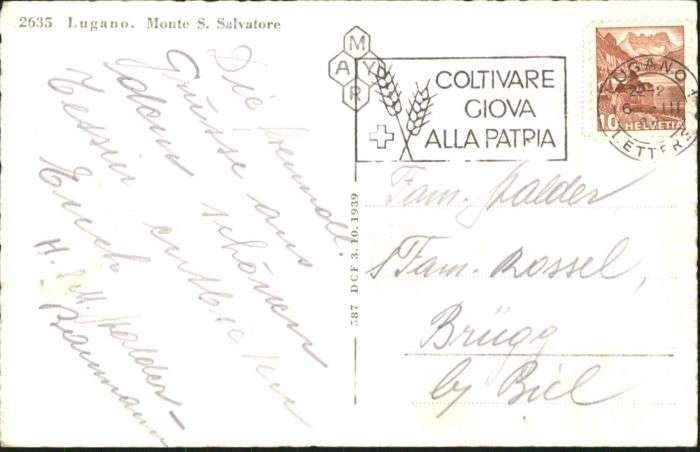 2635 Lugano. Monte S. Salvatore
Die freundl.
Grüsse aus
dem schönen
Tessin entbieten
Euch
H. & M. Malder-
Baumann
MAYR
COLTIVARE
GIOVA
ALLA PATRIA
LUGANO 1
LETTERE
10 HELVETIA
387 DCF 3. 10. 1939
Fam. Malder
& Fam. Rossel,
Brügg
by Biel